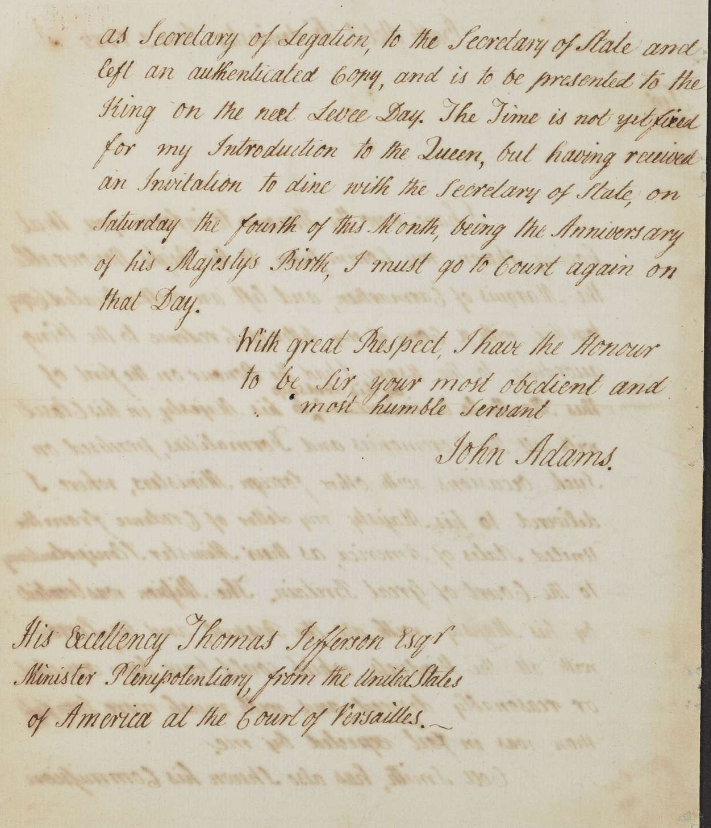 as Secretary of Legation, to the Secretary of State and
left an authenticated Copy, and is to be presented to the
King on the next Levee Day. The Time is not yet fixed
for my Introduction to the Queen, but having received
an Invitation to dine with the Secretary of State, on
Saturday the fourth of this Month, being the Anniversary
of his Majestys Birth, I must go to Court again on
that Day.
With great Respect, I have the Honour
to be Sir your most obedient and
most humble Servant
John Adams.
His Excellency Thomas Jefferson Esqr
Minister Plenipotentiary, from the United States
of America at the Court of Versailles.